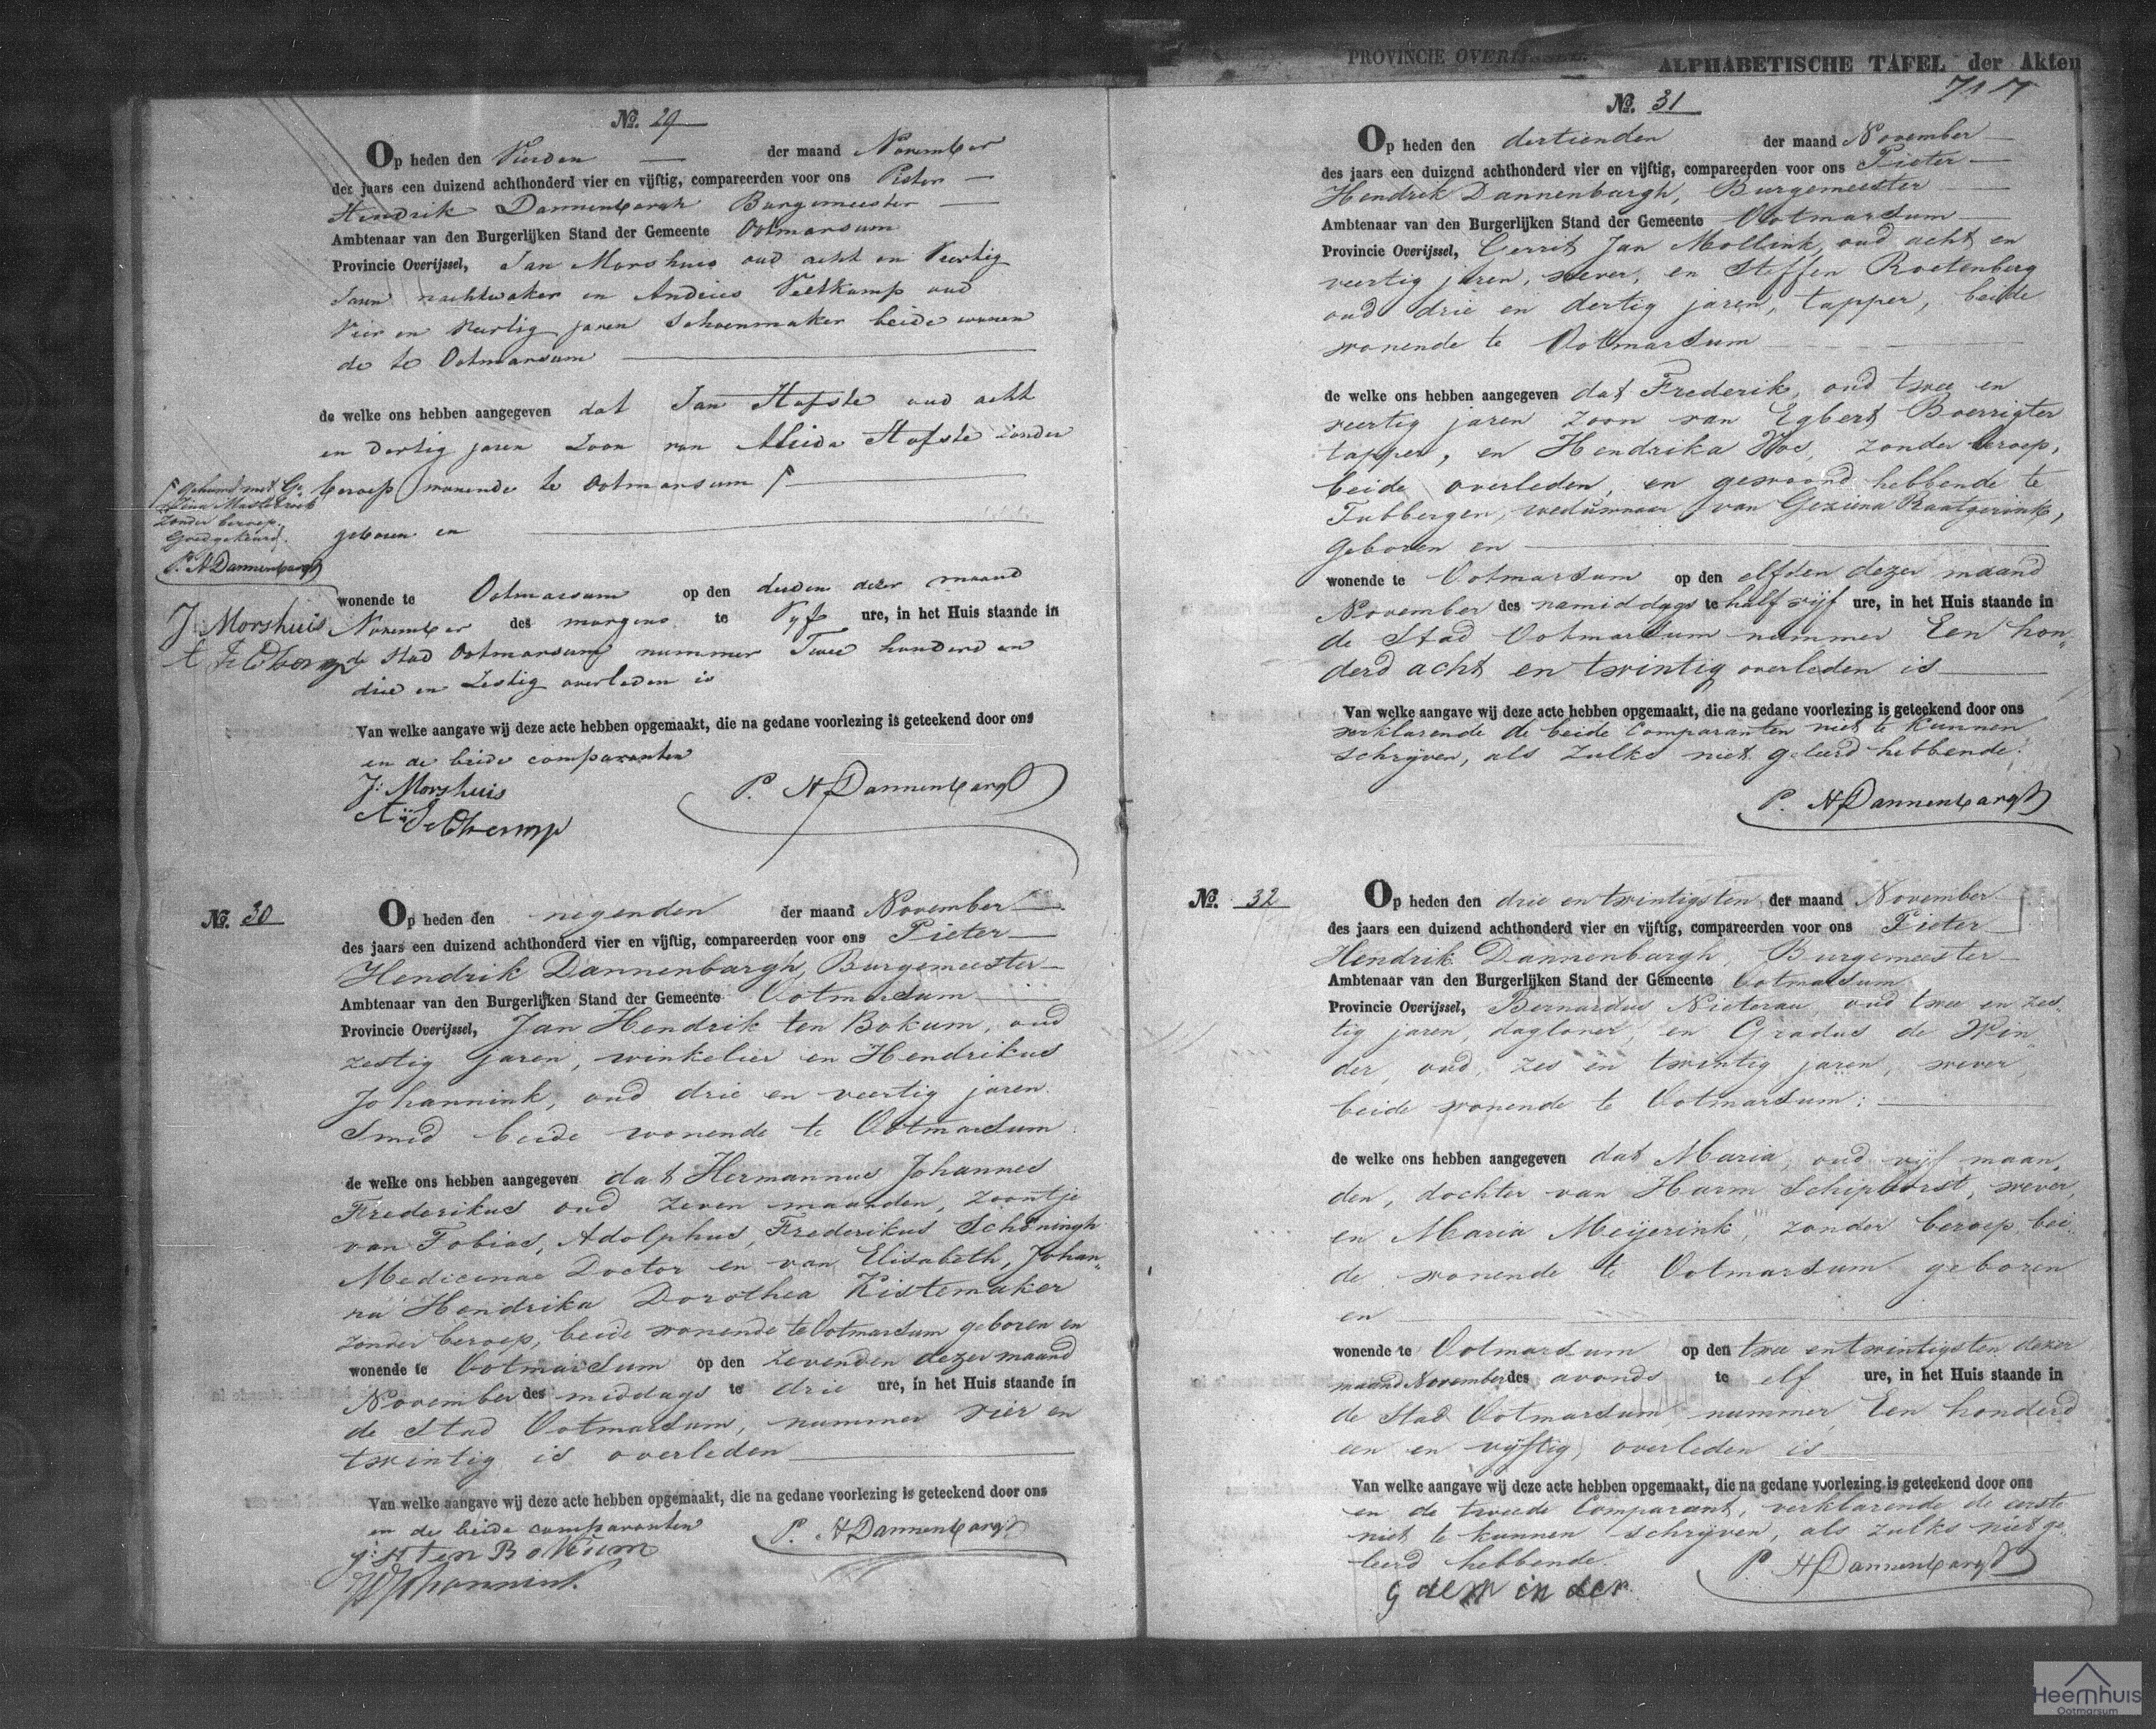 PROVINCIE OVERIJ
ALPHABETISCHE TAFEL der Akten
No. 29
Op heden den Vierden der maand November
des jaars een duizend achthonderd vier en vijftig, compareerden voor ons Pieter
Hendrik Dannenbargh Burgemeester
Ambtenaar van den Burgerlijken Stand der Gemeente Ootmarsum
Provincie Overijssel, Jan Morshuis oud acht en Veertig
Jaren nachtwaker en Andries Veltkamp oud
Vier en Veertig jaren Schoenmaker beide wonen
de te Ootmarsum
de welke ons hebben aangegeven dat Jan Hofste oud acht
en Dertig jaren Zoon van Aleida Hofste zonder
beroep wonende te Ootmarsum
geboren en
wonende te Ootmarsum op den derden dezer maand
November des morgens te Vyf ure, in het Huis staande in
de Stad Ootmarsum nummer Twee honderd en
drie en Zestig overleden is
Van welke aangave wij deze acte hebben opgemaakt, die na gedane voorlezing is geteekend door ons
en de beide comparanten
J: Morshuis
P. H Dannenbargh
gehuwd met Ge
zina
zonder beroep.
Goedgekeurd.
P. H Dannenbargh
J Morshuis
No. 30
Op heden den negenden der maand November
des jaars een duizend achthonderd vier en vijftig, compareerden voor ons Pieter
Hendrik Dannenbargh, Burgemeester
Ambtenaar van den Burgerlijken Stand der Gemeente Ootmarsum
Provincie Overijssel, Jan Hendrik ten Bokum, oud
zestig jaren, winkelier en Hendrikus
Johannink, oud drie en veertig jaren
Smid beide wonende te Ootmarsum
de welke ons hebben aangegeven dat Hermannus Johannes
Frederikus oud zeven maanden, zoontje
van Tobias, Adolphus, Frederikus Schöningh
Medicinae Doctor en van Elisabeth, Johan„
na Hendrika Dorothea Kistemaker
zonder beroep, beide wonende te Ootmarsum geboren en
wonende te Ootmarsum op den zevenden dezer maand
November des middags te drie ure, in het Huis staande in
de Stad Ootmarsum, nummer vier en
twintig is overleden
Van welke aangave wij deze acte hebben opgemaakt, die na gedane voorlezing is geteekend door ons
en de beide comparanten
J: H ten Bokum
P. H Dannenbargh
No. 31
Op heden den dertienden der maand November
des jaars een duizend achthonderd vier en vijftig, compareerden voor ons Pieter
Hendrik Dannenbargh, Burgemeester
Ambtenaar van den Burgerlijken Stand der Gemeente Ootmarsum
Provincie Overijssel, Gerrit Jan Mollink, oud acht en
veertig jaren, wever, en Steffen Roetenberg
oud drie en dertig jaren, tapper, beide
wonende te Ootmarsum
de welke ons hebben aangegeven dat Frederik, oud twee en
veertig jaren zoon van Egbert Boerrigter
tapper, en Hendrika Vos, zonder beroep,
beide overleden, en gewoond hebbende te
Tubbergen, weduwnaar van Geziena Raatgerink,
geboren en
wonende te Ootmarsum op den elfden dezer maand
November des namiddags te half vijf ure, in het Huis staande in
de Stad Ootmarsum nummer Een hon„
derd acht en twintig overleden is
Van welke aangave wij deze acte hebben opgemaakt, die na gedane voorlezing is geteekend door ons
verklarende de beide Comparanten niet te kunnen
schrijven, als zulks niet geleerd hebbende.
P. H Dannenbargh
No. 32
Op heden den drie en twintigsten der maand November
des jaars een duizend achthonderd vier en vijftig, compareerden voor ons Pieter
Hendrik Dannenbargh, Burgemeester
Ambtenaar van den Burgerlijken Stand der Gemeente Ootmarsum
Provincie Overijssel, Bernardus oud twee en zes„
tig jaren, dagloner, en Gradus de Win„
der, oud, zes en twintig jaren, wever,
beide wonende te Ootmarsum:
de welke ons hebben aangegeven dat Maria, oud vijf maan„
den, dochter van Harm Schiphorst, wever,
en Maria Meijerink, zonder beroep, bei„
de wonende te Ootmarsum geboren
en
wonende te Ootmarsum op den twee en twintigsten dezer
maand November des avonds te elf ure, in het Huis staande in
de Stad Ootmarsum nummer Een honderd
een en vijftig, overleden is
Van welke aangave wij deze acte hebben opgemaakt, die na gedane voorlezing is geteekend door ons
en de tweede Comparant, verklarende de eerste
niet te kunnen schrijven, als zulks niet ge„
leerd hebbende.
P H Dannenbargh
G de Winder
Heemhuis
Ootmarsum